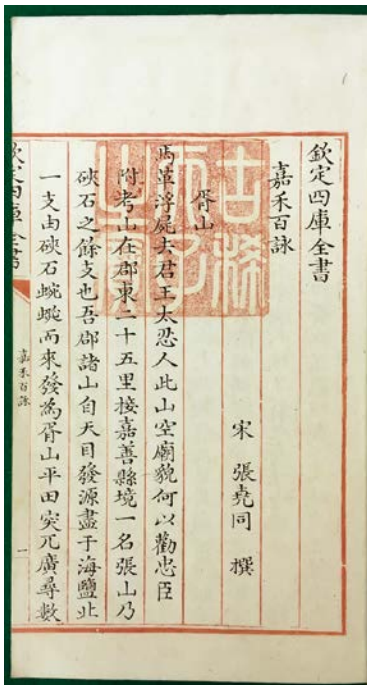 欽定四庫全書
嘉禾百詠
宋 張堯同 撰
胥山
馬革浮屍去君王太忍人此山空廟貌何以勸忠臣
附考山在郡東二十五里接嘉善縣境一名張山乃
硤石之餘支也吾郡諸山自天目發源盡于海鹽此
一支由硤石蜿蜒而來發為胥山平田突兀廣尋數
欽定四庫全書
嘉禾百詠
一
古稀
天子
之寶